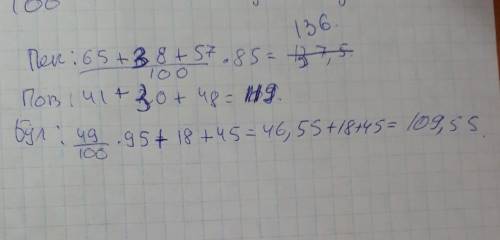 100
136.
Пек: (65+38+57)/100 · 85 = ~~137,5~~
Поз: 41+30+48=119.
Бул: 49/100 · 95+18+45=46,55+18+45=109,55